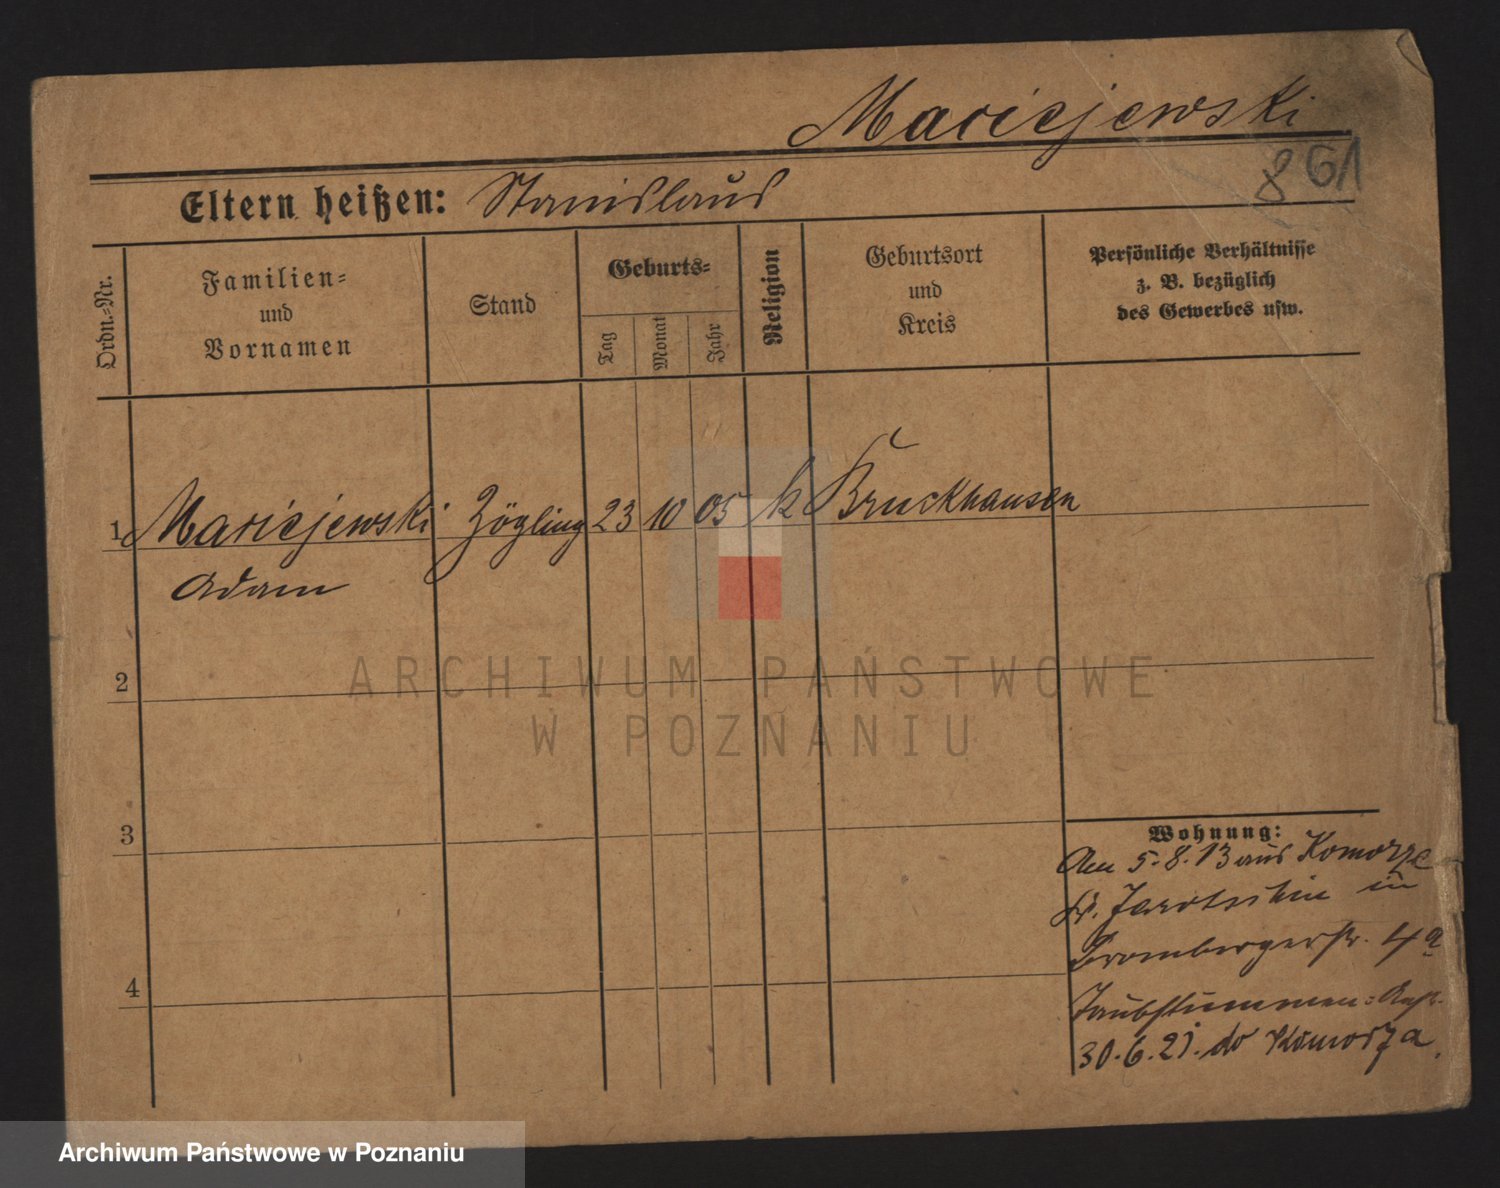 Maciejewski
861
Eltern heißen: Stanislaus
Ordn.-Nr.
Familien-
und
Vornamen
Stand
Geburts-
Tag
Monat
Jahr
Religion
Geburtsort
und
Kreis
Persönliche Verhältnisse
z. B. bezüglich
des Gewerbes usw.
1 Maciejewski Zögling 23 10 05 k Bruckhausen
Adam
2
3
4
Wohnung:
Am 5.8.13 aus Komorze
Kr. Jarotschin in
Brombergerstr. 4a
Taubstummen-Anst.
30.6.21. do Komorza.
ARCHIWUM PAŃSTWOWE
W POZNANIU
Archiwum Państwowe w Poznaniu